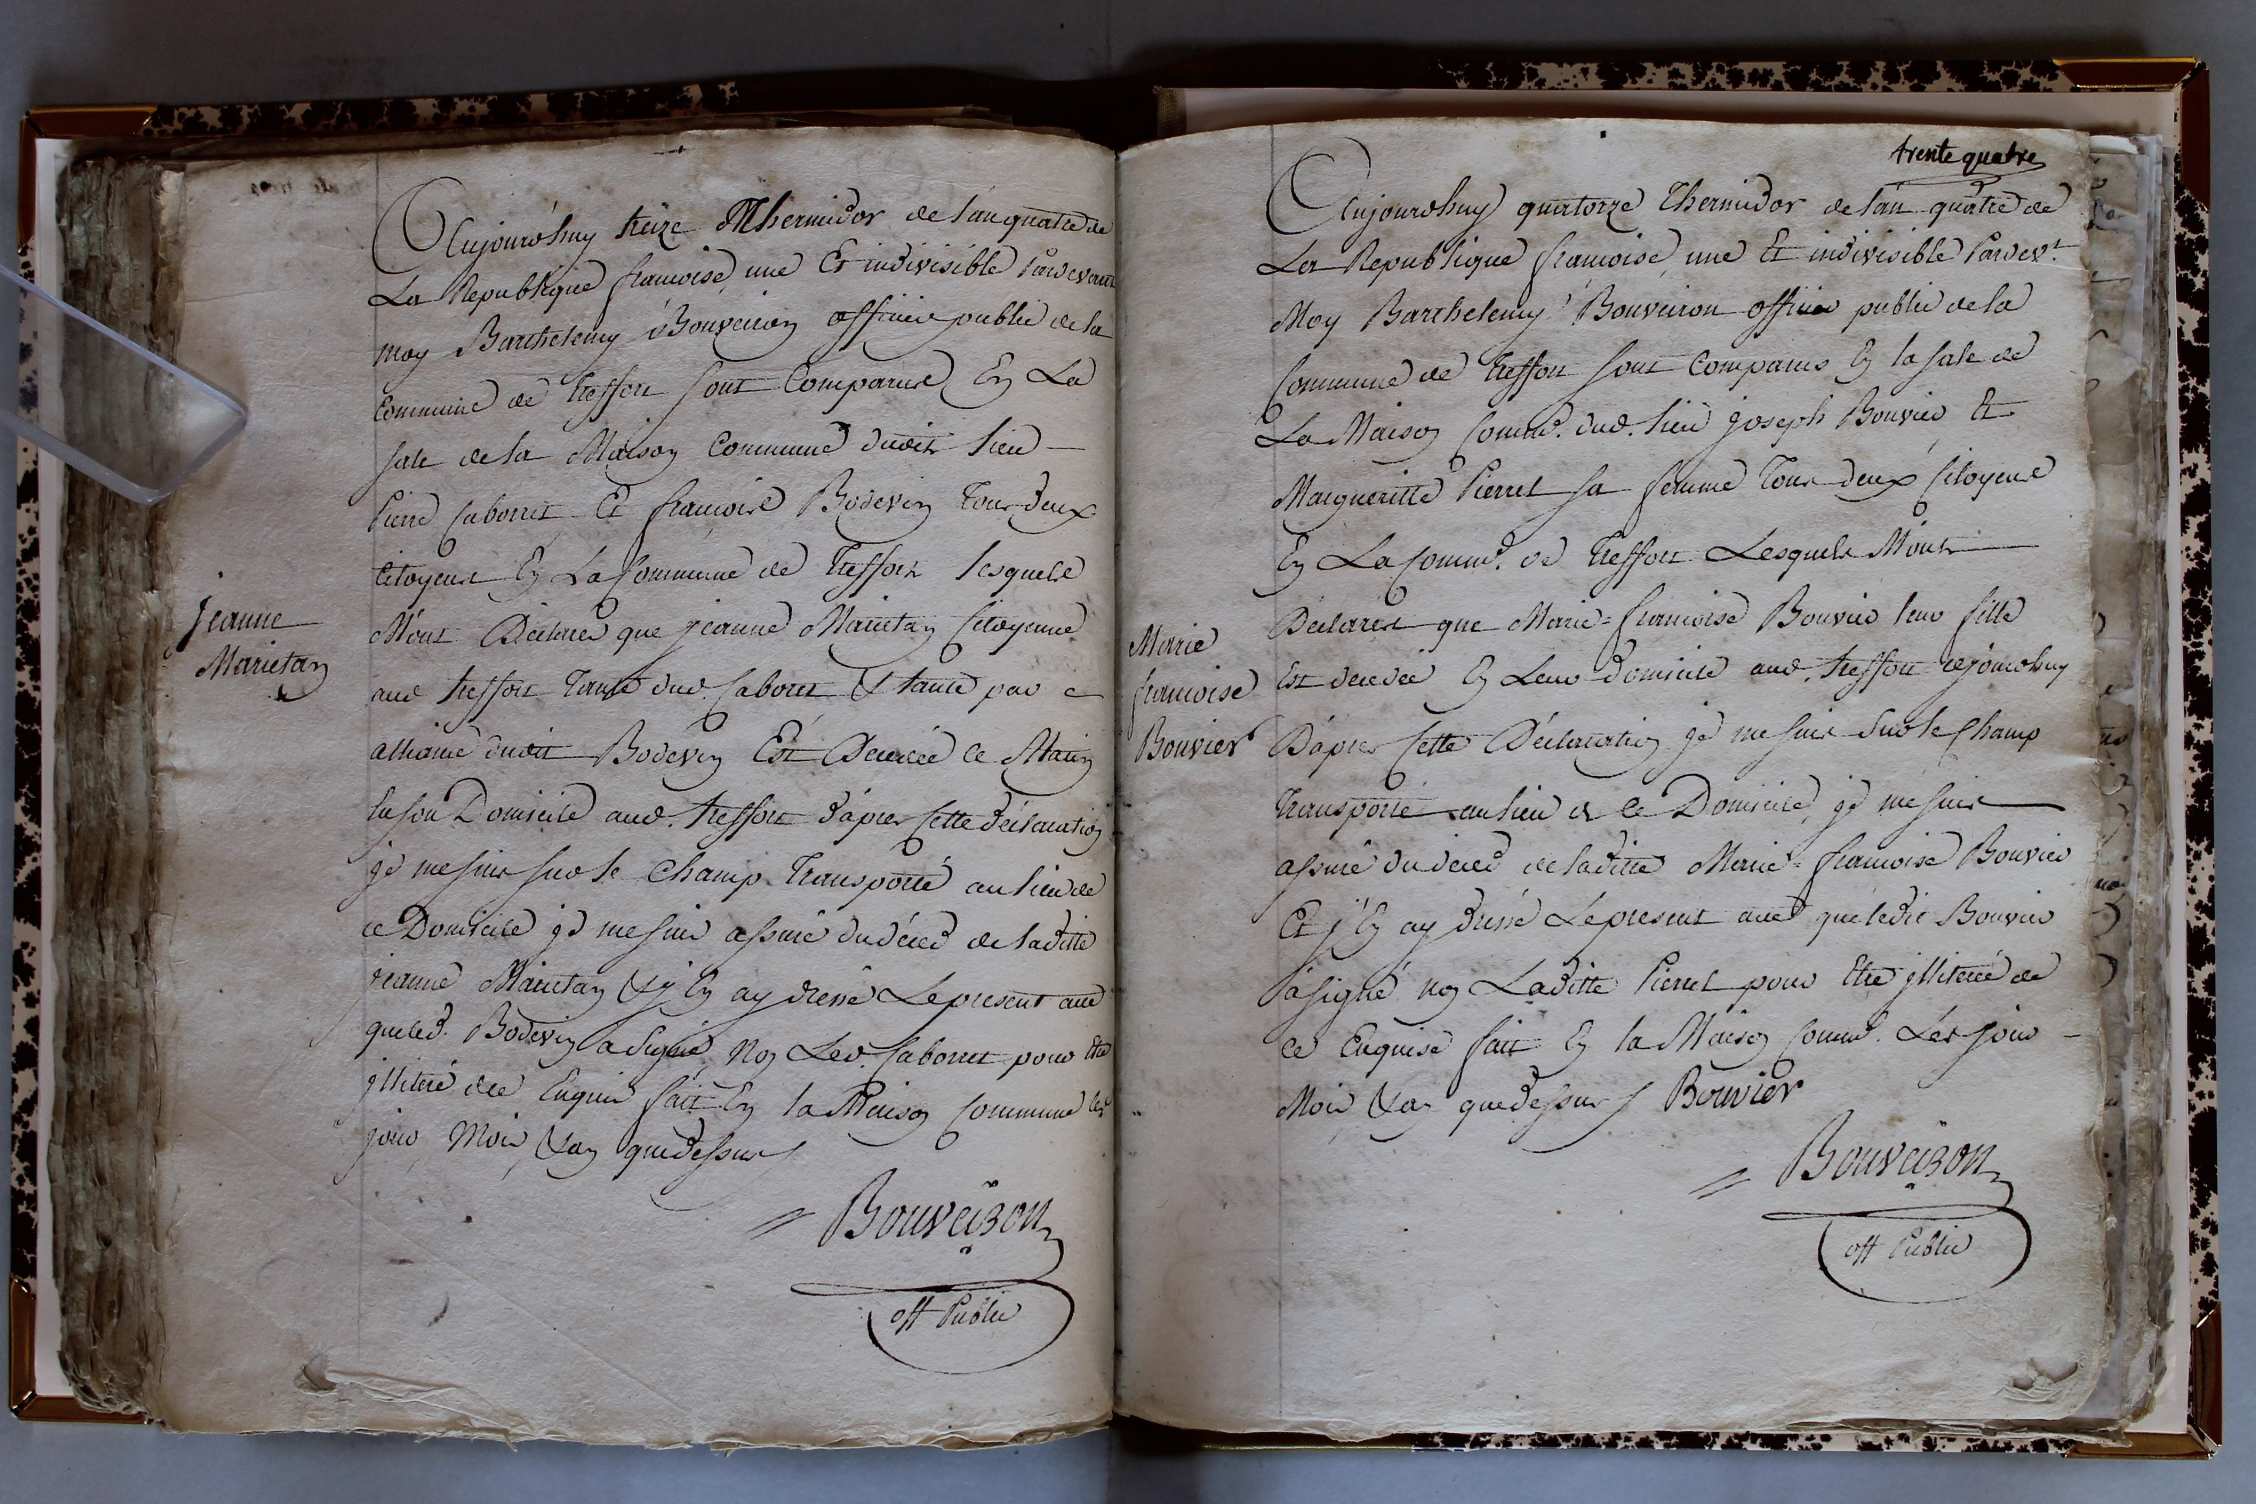 Aujourd'huy treize Thermidor de l'an quatre de
La Republique francoise, une Et indivisible Pardevant
moy Barthelemy Bouveiron officier public de la
Commune de treffort sont Comparus En La
sale de la Maison Commune dudit lieu
Pierre Caborret Et francois Bodevin Tous deux
Citoyens En La Commune de Treffort lesquels
M'ont Déclarés que jeanne Marietan Citoyenne
aud treffort Tante dud Caboret & tante par
alliance dudit Bodevin Est Decedée Ce Matin
En son Domicile aud. treffort d'apres Cette déclaration
je me suis sur le Champ Transporté au lieu de
ce Domicile je me suis assuré du décès de laditte
jeanne Marietan & j'En ay dressé Le present acte
que led. Bodevin a signé, Non Led. Caborret pour être
illiteré de ce Enquis fait En la Maison Commune Les
jour, Mois, & an que dessus
Jeanne
Marietan
Bouveiron
off Public
trente quatre
Aujourd'huy quatorze Thermidor de l'an quatre de
La Republique francoise, une Et indivisible Pardevt
Moy Barthelemy Bouveiron officier public de la
Commune de treffort sont Comparus En la sale de
La Maison Comme. dud. lieu joseph Bouvier Et
Margueritte Pierrel sa femme Tous deux Citoyens
En La Comme. de Treffort Lesquels M'ont
Déclarés que Marie=francoise Bouvier leur fille
Est decedée En Leur domicile aud. treffort cejourdhuy
D'apres Cette Déclaration je me suis sur le Champ
Transporté au lieu de ce Domicile, je me suis
assuré du décès de laditte Marie=francoise Bouvier
Et j'En ay dressé Le present acte que ledit Bouvier
a signé, non Laditte Pierrel pour être illiterée de
ce Enquise fait En la Maison Comme. Les jour
Mois & an que dessus Bouvier
Marie
francoise
Bouvier
Bouveiron
off Public